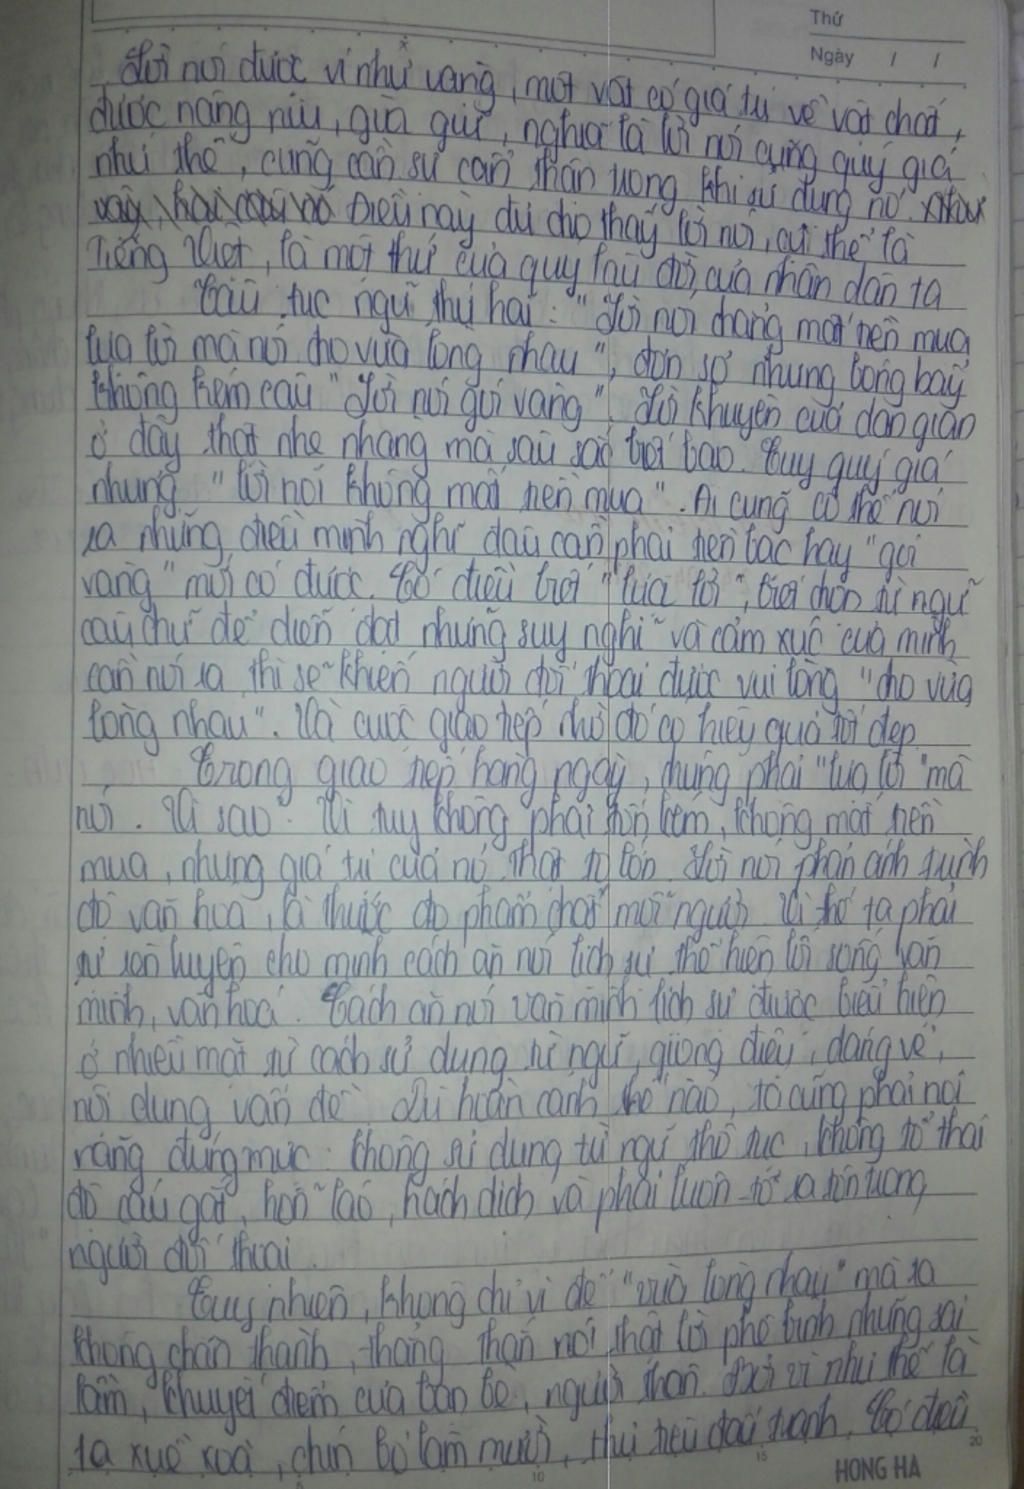 Thứ
Ngày / /
Lời nói được ví như vàng, một vật có giá trị về vật chất,
được nâng niu, giữ gìn, nghĩa là lời nói cũng quý giá
như thế, cũng cần sự cẩn thận trong khi sử dụng nó.
Điều này đủ cho thấy lời nói, cụ thể là
Tiếng Việt, là một thứ của quý lâu đời của nhân dân ta
Câu tục ngữ thứ hai: "Lời nói chẳng mất tiền mua
Lựa lời mà nói cho vừa lòng nhau", đơn sơ nhưng bóng bẩy
không kém câu "Lời nói gói vàng". Lời khuyên của dân gian
ở đây thật nhẹ nhàng mà sâu sắc biết bao. Tuy quý giá
nhưng "lời nói không mất tiền mua". Ai cũng có thể nói
ra những điều mình nghĩ đâu cần phải tiền bạc hay "gói
vàng" mới có được. Có điều biết "lựa lời", biết chọn từ ngữ
câu chữ để diễn đạt những suy nghĩ và cảm xúc của mình
cần nói ra thì sẽ khiến người đối thoại được vui lòng "cho vừa
lòng nhau". Và cuộc giao tiếp nhờ đó có hiệu quả tốt đẹp
Trong giao tiếp hàng ngày, chúng phải "lựa lời" mà
nói. Vì sao? Vì tuy không phải tốn kém, không mất tiền
mua, nhưng giá trị của nó thật to lớn. Lời nói phản ánh trình
độ văn hoá, là thước đo phẩm chất mỗi người. Vì thế ta phải
tự rèn luyện cho mình cách ăn nói lịch sự thể hiện lối sống văn
minh, văn hoá. Cách ăn nói văn minh lịch sự được biểu hiện
ở nhiều mặt từ cách sử dụng từ ngữ, giọng điệu, dáng vẻ,
nội dung vấn đề. Dù hoàn cảnh thế nào, ta cũng phải nói
năng đúng mực: không sử dụng từ ngữ thô tục, không tỏ thái
độ cáu gắt, hỗn láo, hách dịch và phải luôn tỏ ra tôn trọng
người đối thoại.
Tuy nhiên, không chỉ vì để "vừa lòng nhau" mà ta
không chân thành, thẳng thắn nói thật lời phê bình những sai
lầm, khuyết điểm của bạn bè, người thân. Bởi vì như thế là
ta xuề xoà, chín bỏ làm mười, thui đấu tranh. Có điều
5 10 15 20
HONG HA